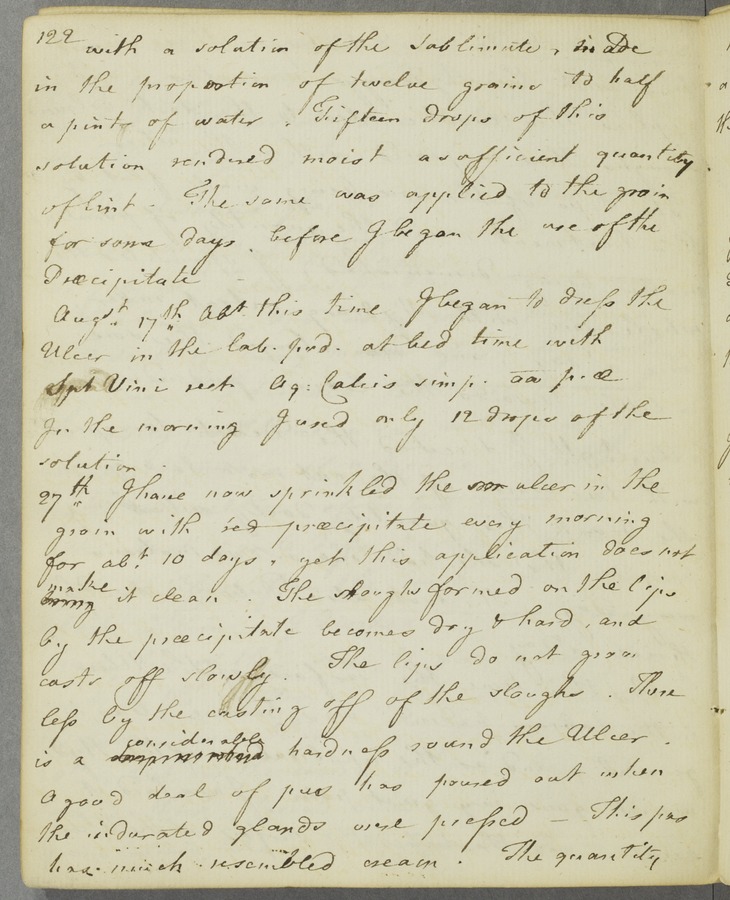 122 with a solution of the sublimate, made
in the proportion of twelve grains to half
a pint of water. Fifteen drops of this
solution rendered moist a sufficient quantity
of lint. The same was applied to the groin
for some days before I began the use of the
Præcipitate
Augst. 17th Abt this time I began to dress the
Ulcer in the lab. pud. at bed time with
Spt Vini rect Aq: Calcis simp. aa p. æ
In the morning I used only 12 drops of the
solution.
27th I have now sprinkled the ulcer in the
groin with red præcipitate every morning
for abt. 10 days, yet this application does not
make
bring it clean. The sloughs formed on the lips
by the præcipitate becomes dry & hard, and
casts off slowly. The lips do not grow
less by the casting off of the sloughs. There
considerable
is a hardness round the Ulcer.
A good deal of pus has poured out when
the indurated glands were pressed — This pus
has much resembled cream. The quantity